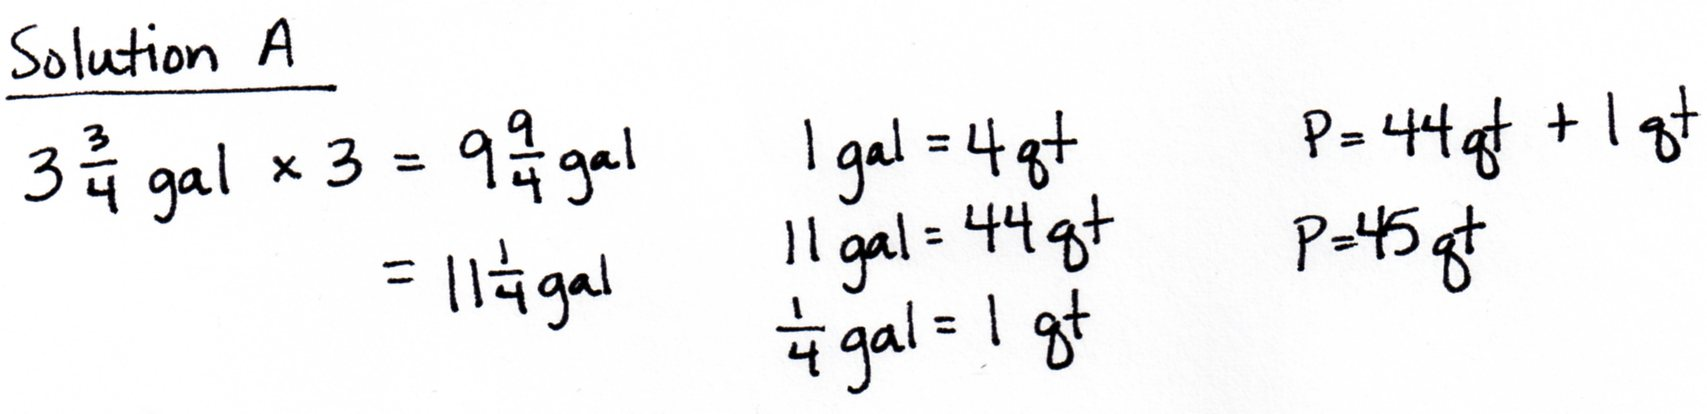 Solution A
3 3/4 gal × 3 = 9 9/4 gal
= 11 1/4 gal
1 gal = 4 qt
11 gal = 44 qt
1/4 gal = 1 qt
P = 44 qt + 1 qt
P = 45 qt